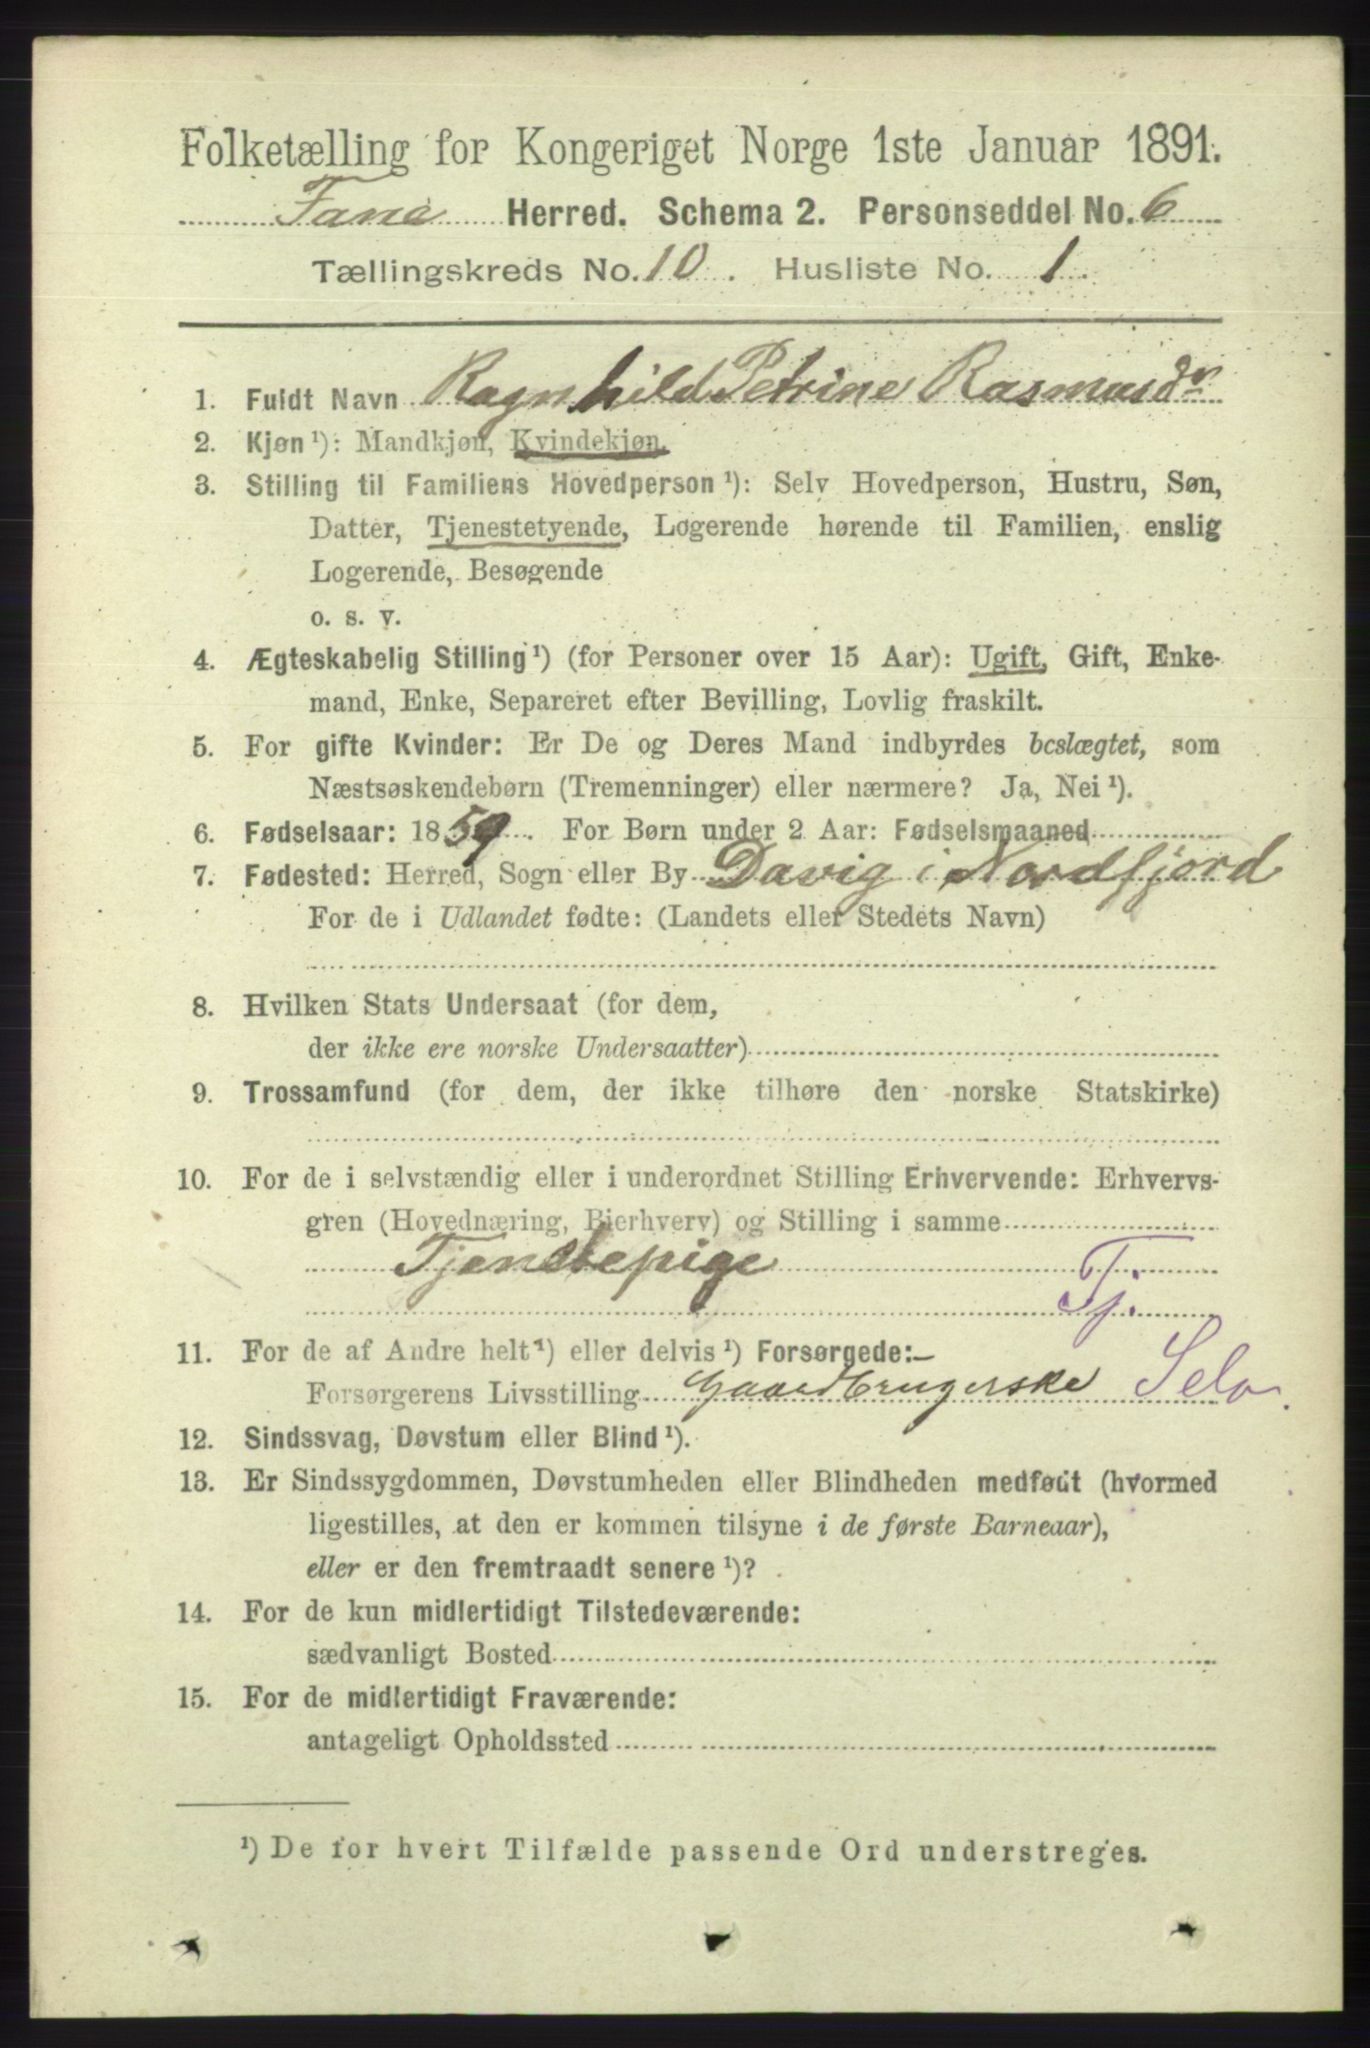 Folketælling for Kongeriget Norge 1ste Januar 1891.
Fane Herred. Schema 2. Personseddel No. 6
Tællingskreds No. 10. Husliste No. 1.
1. Fuldt Navn Ragnhild Petrine Rasmusdr
2. Kjøn ¹): Mandkjøn, Kvindekjøn.
3. Stilling til Familiens Hovedperson ¹): Selv Hovedperson, Hustru, Søn,
Datter, Tjenestetyende, Logerende hørende til Familien, enslig
Logerende, Besøgende
o. s. v.
4. Ægteskabelig Stilling ¹) (for Personer over 15 Aar): Ugift, Gift, Enke-
mand, Enke, Separeret efter Bevilling, Lovlig fraskilt.
5. For gifte Kvinder: Er De og Deres Mand indbyrdes beslægtet, som
Næstsøskendebørn (Tremenninger) eller nærmere? Ja, Nei ¹).
6. Fødselsaar: 1859. For Børn under 2 Aar: Fødselsmaaned
7. Fødested: Herred, Sogn eller By Davig i Nordfjord
For de i Udlandet fødte: (Landets eller Stedets Navn)
8. Hvilken Stats Undersaat (for dem,
der ikke ere norske Undersaatter)
9. Trossamfund (for dem, der ikke tilhøre den norske Statskirke)
10. For de i selvstændig eller i underordnet Stilling Erhvervende: Erhvervs-
gren (Hovednæring, Bierhverv) og Stilling i samme
Tjenstepige
Tj.
11. For de af Andre helt ¹) eller delvis ¹) Forsørgede:
Forsørgerens Livsstilling Gaardbrugerske Selv.
12. Sindssvag, Døvstum eller Blind ¹).
13. Er Sindssygdommen, Døvstumheden eller Blindheden medfødt (hvormed
ligestilles, at den er kommen tilsyne i de første Barneaar),
eller er den fremtraadt senere ¹)?
14. For de kun midlertidigt Tilstedeværende:
sædvanligt Bosted
15. For de midlertidigt Fraværende:
antageligt Opholdssted
¹) De for hvert Tilfælde passende Ord understreges.